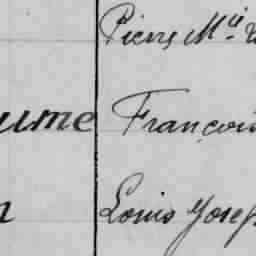 Pierre Mie
ume François
n Louis Josep